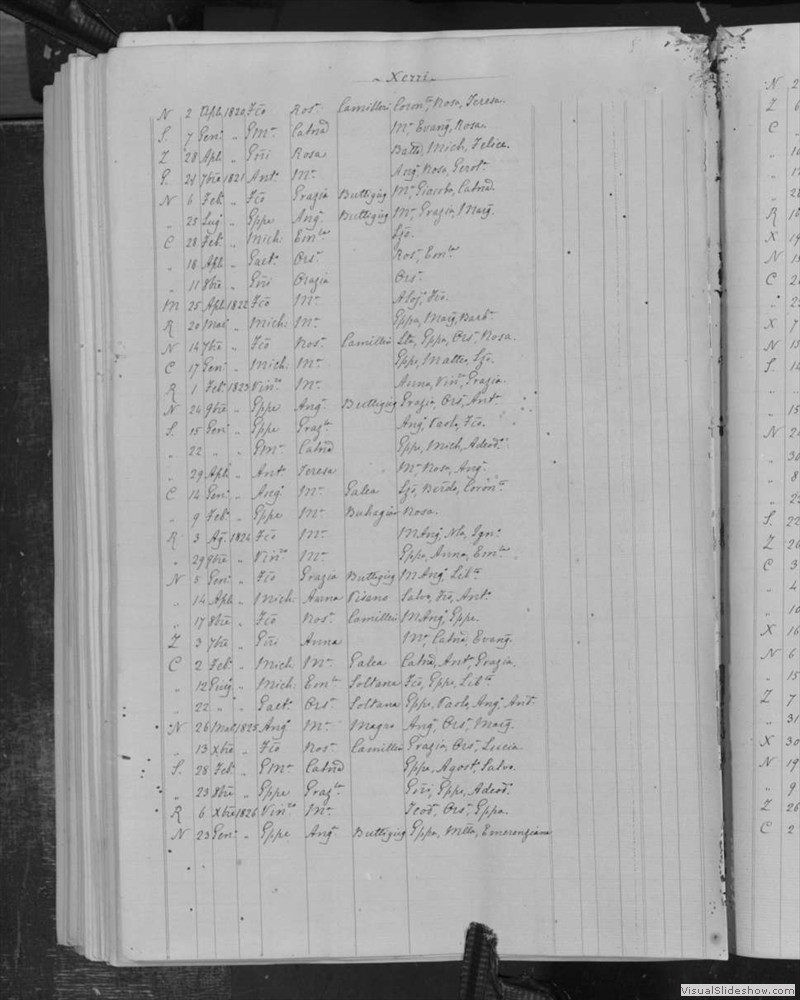 ~ Xerri ~
N 2 Aple 1820 Fcō Ros. Camilleri Coron. Rosa, Teresa.
S. 7 Gen. „ GMa. Catnā Mr. Evang. Rosa.
Z 28 Aple „ Gñi Rosa Batta, Mich, Felice.
G. 24 7bre 1821 Ant. Ma. Ang. Rosa, Gerot.
N 6 Feb. „ Fcō Grazia Buttigieg Ma. Giacobo, Catnā.
„ 25 Lug. „ Gppe Ang. Buttigieg Ma. Grazia, Marg.
C 28 Feb. „ Mich. Emla Lzo.
„ 16 Aple „ Gaet. Ors. Ros. Emla
„ 11 8bre „ Gñi Grazia Ors.
M 25 Aple 1822 Fcō Ma. Aloj. Fcō.
R 20 Mar. „ Mich. Ma. Gppa, Marg. Barb.
N 14 7bre „ Fcō Ros. Camilleri Gppa, Ors. Rosa.
C 17 Gen. „ Mich. Ma. Gppe, Matteo, Lzo.
R 1 Feb. 1823 Vinzo Ma. Anna, Vinza Grazia.
N 24 9bre „ Gppe Ang. Buttigieg Grazia, Ors. Ant.
S. 15 Gen. „ Gppe Grazla Ang. Paolo, Fcō.
„ 22 „ „ GMa. Catnā Gppe, Mich, Adeod.
„ 29 Aple „ Ant. Teresa Ma. Rosa, Ang.
C 14 Gen. „ Ang. Ma. Galea Lzo, Berdo, Coron.
„ 9 Feb. „ Gppe Ma. Buhagiar Rosa.
R 3 Ag. 1824 Fcō Ma. M.Ang. Nla, Ign.
„ 29 9bre „ Vinzo Ma. Gppa, Anna, Emla
N 5 Gen. „ Fcō Grazia Buttigieg M.Ang. Libta
„ 14 Aple „ Mich. Anna Pisano Salvo, Fcō, Ant.
„ 17 8bre „ Fcō Ros. Camilleri M.Ang. Gppa.
Z 3 7bre „ Gñi Anna Ma. Catnā, Evang.
C 2 Feb. „ Mich. Ma. Galea Catnā, Ant. Grazia.
„ 12 Giug. „ Mich. Emla Soltana Fcō, Gppe, Libta
„ 22 „ „ Gaet. Ors. Soltana Gppe, Paolo, Ang. Ant.
N 26 Mar. 1825 Ang. Ma. Magro Ang. Ors. Marg.
„ 13 Xbre „ Fcō Ros. Camilleri Grazia, Ors. Lucia.
S. 28 Feb. „ GMa. Catnā Gppa, Agost. Salvo.
„ 23 8bre „ Gppe Grazla Gñi, Gppe, Adeod.
R 6 Xbre 1826 Vinzo Ma. Teod. Ors. Gppa.
N 23 Gen. „ Gppe Ang. Buttigieg Gppa, Mtta, Emerenziana
VisualSlideshow.com